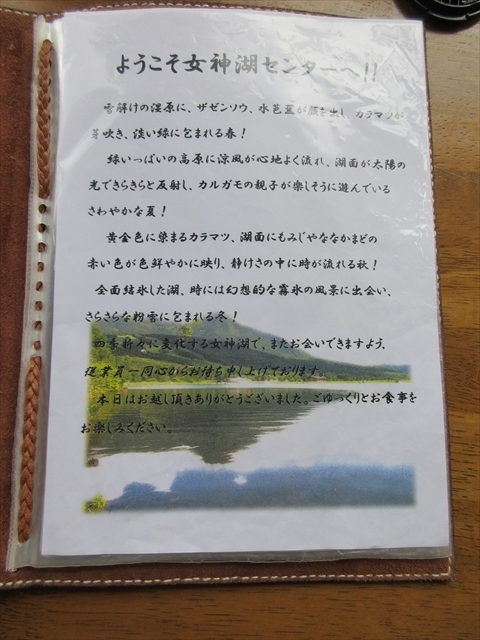 ようこそ女神湖センターへ!!
雪解けの湿原に、ザゼンソウ、水芭蕉が顔を出し、カラマツが
芽吹き、淡い緑に包まれる春!
緑いっぱいの高原に涼風が心地よく流れ、湖面が太陽の
光できらきらと反射し、カルガモの親子が楽しそうに遊んでいる
さわやかな夏!
黄金色に染まるカラマツ、湖面にもみじやななかまどの
赤い色が色鮮やかに映り、静けさの中に時が流れる秋!
全面結氷した湖、時には幻想的な霧氷の風景に出会い、
さらさらな粉雪に包まれる冬!
四季折々に変化する女神湖で、またお会いできますよう、
従業員一同心からお待ち申し上げております。
本日はお越し頂きありがとうございました。ごゆっくりとお食事を
お楽しみください。